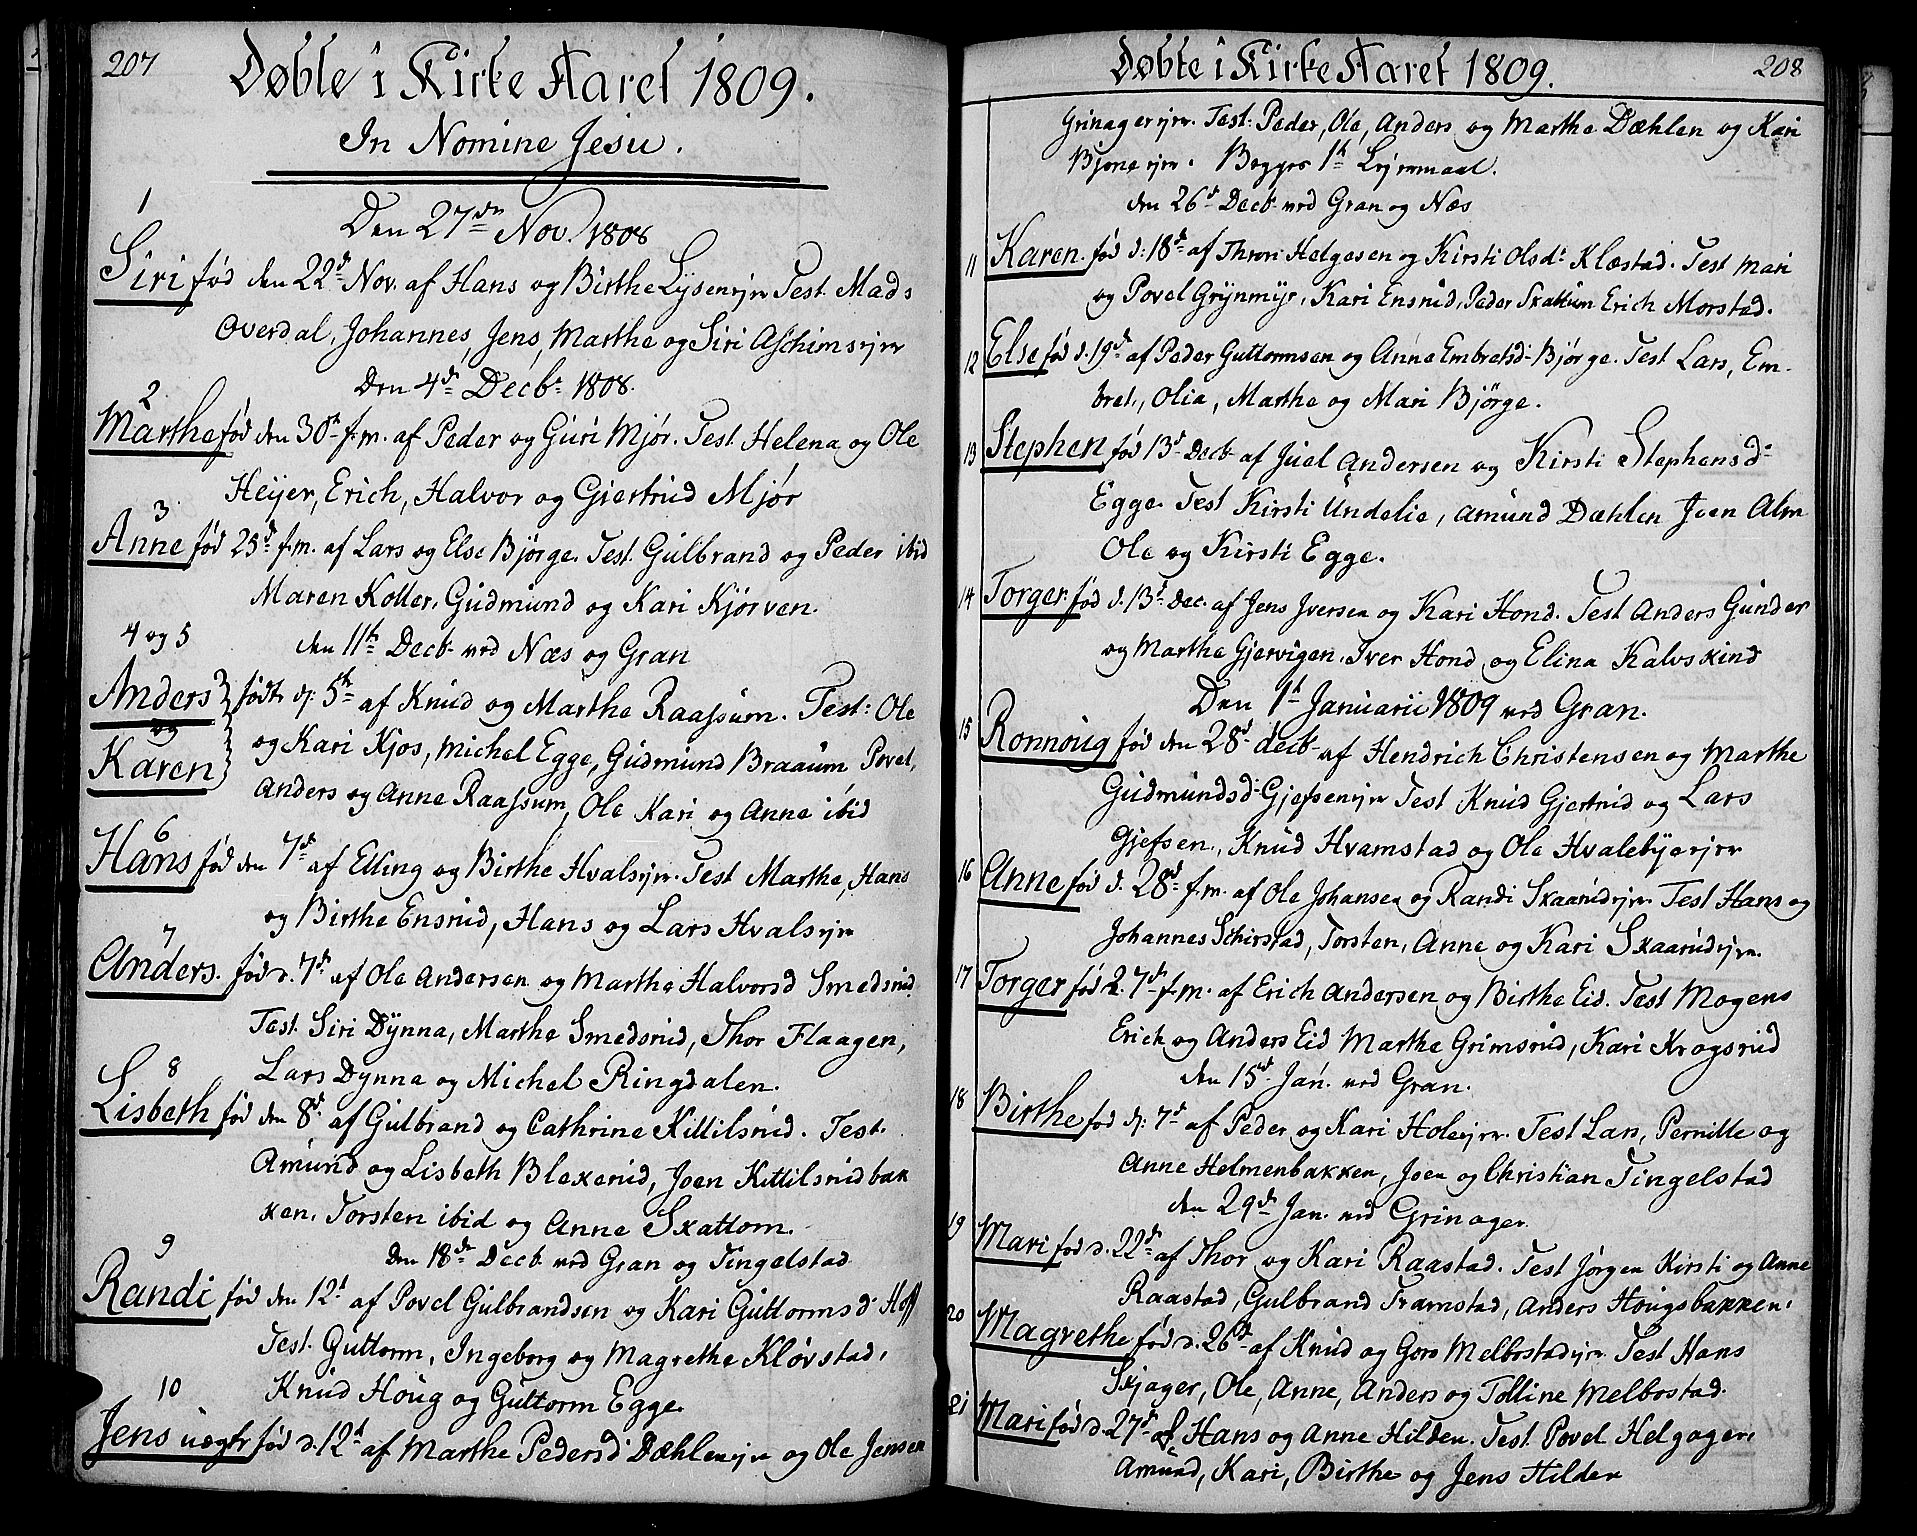 207
Døbte i Kirke Aaret 1809.
In Nomine Jesu.
Den 27de Nov. 1808
1
Siri fød den 22d Nov. af Hans og Birthe Lysenejer Test. Mads
Overdal, Johannes, Jens, Marthe og Siri Aschimsejer
Den 4d Decb. 1808.
2
Marthe fød den 30t f.m. af Peder og Guri Mjør. Test. Helena og Ole
Heyer, Erich, Halvor og Giertrud Mjør
3
Anne fød 25d f.m. af Lars og Else Bjørge. Test. Gulbrand og Peder ibid
Maren Koller, Gudmund og Kari Kjørven.
den 11th Decb. ved Næs og Gran
4 og 5
Anders og Karen fødte d: 5th af Knud og Marthe Raassum. Test: Ole
og Kari Kjos, Michel Egge, Gudmund Braaum Povel,
Anders og Anne Raassum, Ole Kari og Anne ibid
6
Hans fød den 7d af Elling og Birthe Hvalsejer. Test Marthe, Hans
og Birthe Ensrud, Hans og Lars Hvalsejer
7
Anders. fød d. 7d af Ole Andersen og Marthe Halvorsd Smedsrud.
Test. Siri Dynna, Marthe Smedsrud, Thor Flaagen,
Lars Dynna og Michel Ringdalen.
8
Lisbeth fød den 8d af Gulbrand og Cathrine Kittilsrud. Test.
Amund og Lisbeth Blexerud, Joen Kittilsrudbak
ken, Torsten ibid og Anne Skattom.
Den 18de Decb. ved Gran og Tingelstad
9
Randi fød den 12t af Povel Gulbrandsen og Kari Guttormsd Hoff
Test. Guttorm, Ingeborg og Magrethe Kløvstad,
Knud Houg og Guttorm Egge.
10
Jens uægte fød d. 12t af Marthe Pedersd Dæhlenejer og Ole Jensen
208
Døbte i Kirke Aaret 1809.
Grinagerejer. Test: Peder, Ole, Anders og Marthe Dæhlen og Kari
Bjoneejer. Begges 1t Lejermaal.
den 26d Decb. ved Gran og Næs
11 Karen. fød d: 18d af Thron Helgesen og Kirsti Olsd. Klæstad. Test Mari
og Povel Grynmyr, Kari Ensrud, Peder Skattum Erich Morstad.
12 Else fød d. 19d af Peder Guttormsen og Anne Embretsd. Bjørge. Test Lars, Em-
bret, Olia, Marthe og Mari Bjørge.
13 Stephen fød 13d Decb. af Juel Andersen og Kirsti Stephensd.
Egge. Test Kirsti Undelie, Amund Dæhlen Joen Alm
Ole og Kirsti Egge.
14 Torger. fød d. 13d Dec. af Jens Iversen og Kari Hond. Test Anders Gunder
og Marthe Gjervigen, Iver Hond og Elina Kalvskind
Den 1t Januarii 1809 ved Gran.
15 Ronnoug fød den 28d decb. af Hendrich Christensen og Marthe
Gudmundsd. Gjefsenejer Test Knud Gjertrud og Lars
Gjefsen, Knud Hvamstad og Ole Hvalebyeejer
16 Anne fød d. 28d f.m. af Ole Johansen og Randi Skaarudejer Test Hans og
Johannes Schirstad, Torsten, Anne og Kari Skaarudejer.
17 Torger fød 27d f.m. af Erich Andersen og Birthe Eid. Test Mogens
Erich og Anders Eid Marthe Grimsrud, Kari Krogsrud
den 15d Jan. ved Gran.
18 Birthe fød d: 7d af Peder og Kari Holeejer. Test Lars, Pernille og
Anne Helmenbakken, Joen og Christian Tingelstad
den 29d Jan. ved Grinager
19 Mari fød d. 22d af Thor og Kari Raastad. Test Jørgen Kirsti og Anne
Raastad, Gulbrand Framstad, Anders Hougsbakken.
20 Magrethe fød d. 26d af Knud og Goro Melbostadejer Test Hans
Skjager, Ole, Anne, Anders og Tolline Melbostad.
21 Mari fød d. 27d af Hans og Anne Hilden. Test. Povel Helgager,
Amund, Kari, Birthe og Jens Hilden